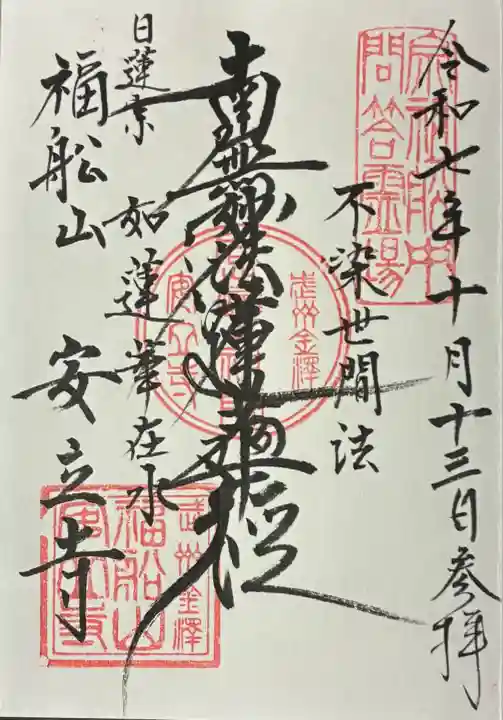 令和七年十月十三日参拝
宗祖船中
問答霊場
不染世間法
南無妙法蓮華経
如蓮華在水
日蓮宗
福船山 安立寺
武州金澤
安立寺
武州金澤
福船山
安立寺